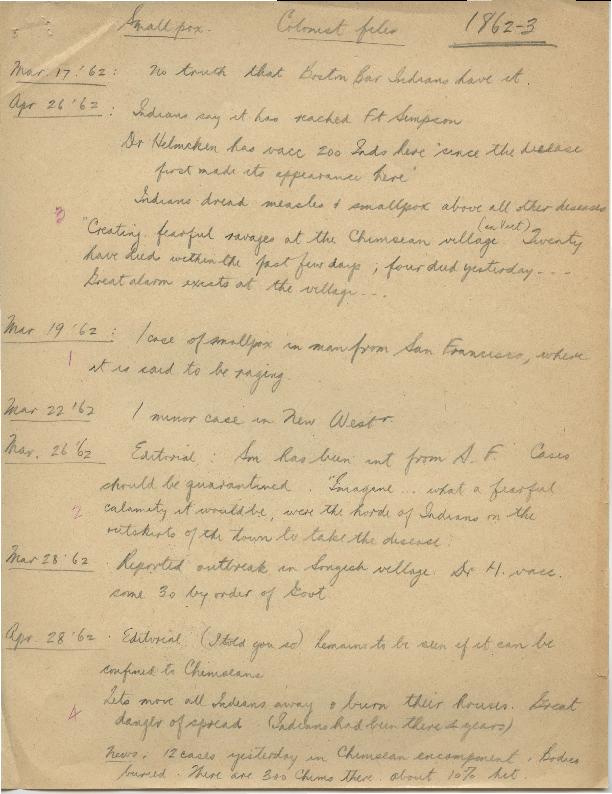 Smallpox. Colonist files 1862-3
Mar. 17. '62: no truth that Boston Bar Indians have it.
Apr 26 '62: Indians say it has reached Ft Simpson
Dr Helmcken has vacc 200 Inds here 'since the disease
first made its appearance here'
Indians dread measles & smallpox above all other diseases
3
"Creating fearful ravages at the Chimsean village (on Vict) Twenty
have died within the past few days; four died yesterday - - -
Great alarm exists at the village - - -
Mar 19 '62: 1 case of smallpox in man from San Francisco, where
1
it is said to be raging.
Mar 22 '62 1 minor case in New Westr
Mar. 26 '62 Editorial: Sm has been int from S.F. Cases
should be quarantined. "Imagine ... what a fearful
2
calamity it would be, were the horde of Indians on the
outskirts of the town to take the disease.
Mar 28 '62 Reported outbreak in Songech village. Dr H. vacc.
some 30 by order of Govt
Apr. 28 '62. Editorial (I told you so) remains to be seen if it can be
confined to Chimseans
Lets move all Indians away & burn their houses. Great
4
danger of spread. (Indians had been there 4 years)
News. 12 cases yesterday in Chimsean encampment. Bodies
buried. There are 300 Chims there. about 10% hit.